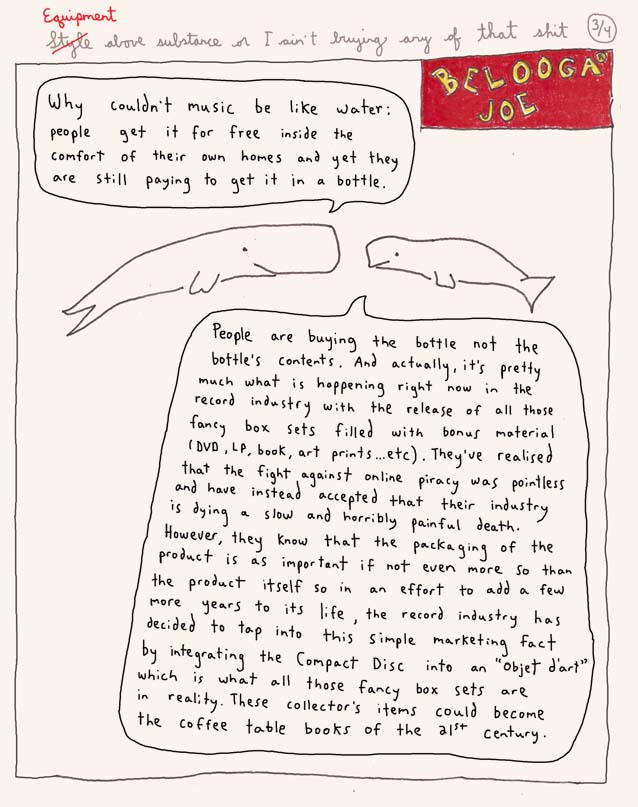 Equipment
Style above substance or I ain't buying any of that shit 3/4
BELOOGA
JOE
Why couldn't music be like water:
people get it for free inside the
comfort of their own homes and yet they
are still paying to get it in a bottle.
People are buying the bottle not the
bottle's contents. And actually, it's pretty
much what is happening right now in the
record industry with the release of all those
fancy box sets filled with bonus material
(DVD, LP, book, art prints...etc). They've realised
that the fight against online piracy was pointless
and have instead accepted that their industry
is dying a slow and horribly painful death.
However, they know that the packaging of the
product is as important if not even more so than
the product itself so in an effort to add a few
more years to its life, the record industry has
decided to tap into this simple marketing fact
by integrating the Compact Disc into an "objet d'art"
which is what all those fancy box sets are
in reality. These collector's items could become
the coffee table books of the 21st century.